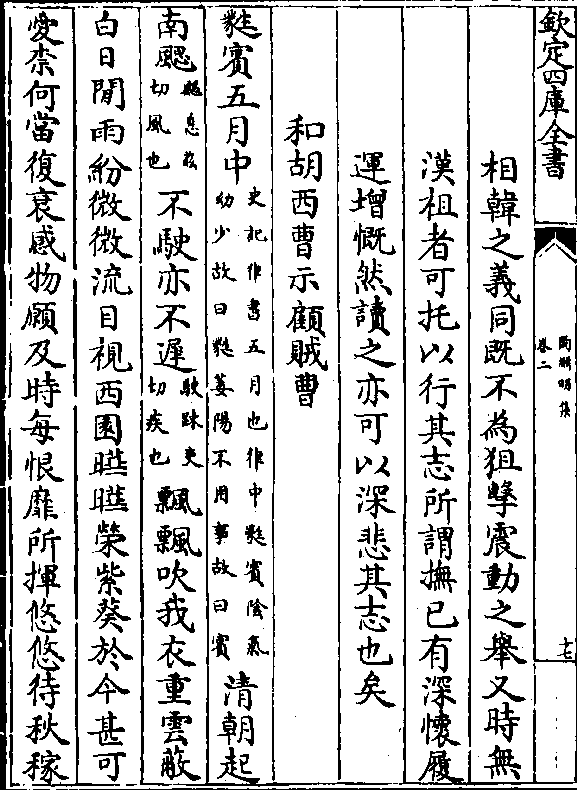 欽定四庫全書
陶淵明集
卷二
十七
相韓之義同既不為狙擊震動之舉又時無
漢祖者可托以行其志所謂撫已有深懷履
運增慨然讀之亦可以深悲其志也矣
和胡西曹示顧賊曹
蕤賓五月中史記作書五月也作中蕤賓陰氣幼少故曰蕤萎陽不用事故曰賓清朝起
南颸颸息兹切風也不駛亦不遲駛踈吏切疾也飄飄吹我衣重雲蔽
白日閒雨紛微微流目視西園曄曄榮紫葵於今甚可
愛柰何當復衰感物願及時每恨靡所揮悠悠待秋稼